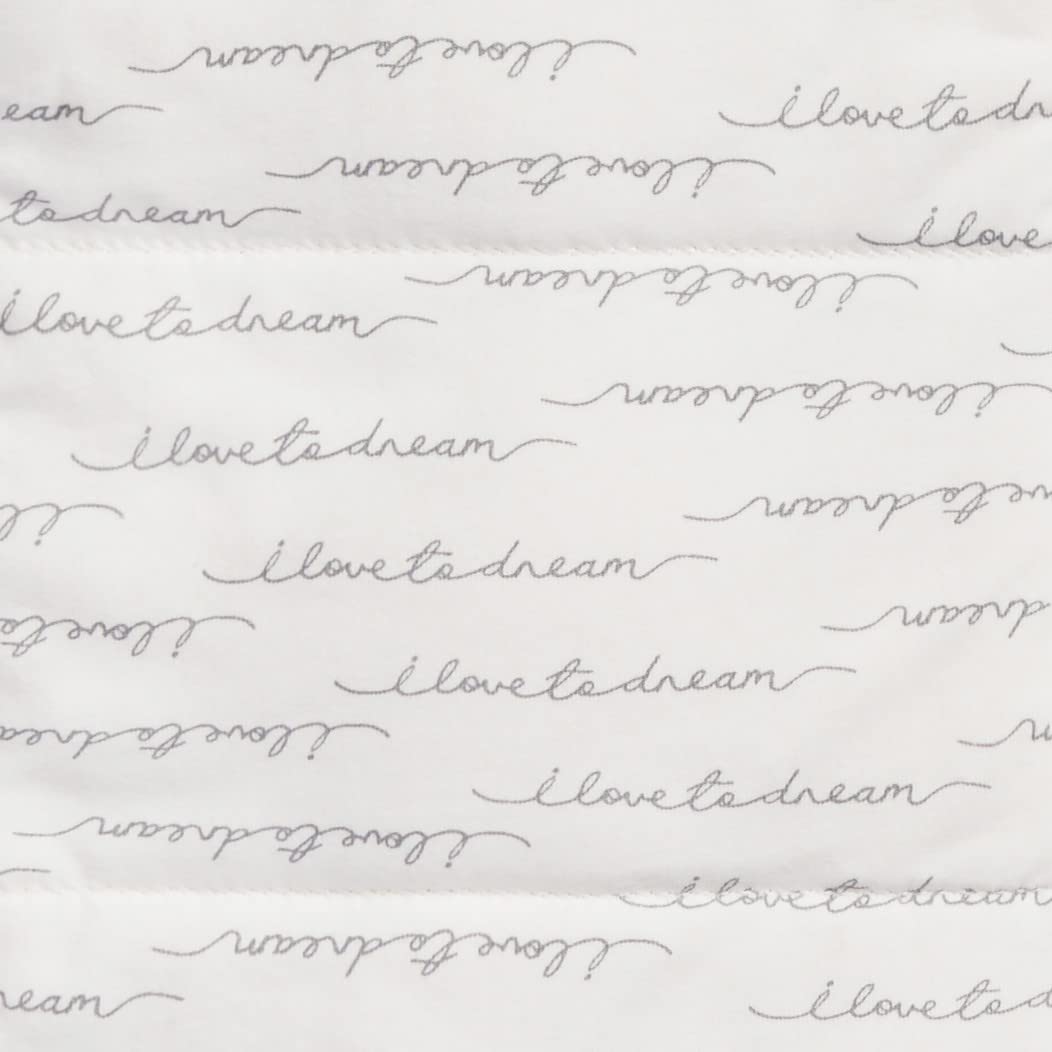 i love to dream
eam
i love to dr
i love to dream
to dream
i love
i love to dream
i love to dream
i love to dream
i love to dream
ve to dream
il
i love to dream
dream
i love to
i love to dream
i love to drea
i love to dream
i love to dream
i love to dream
i love to dream
ream
i love to d